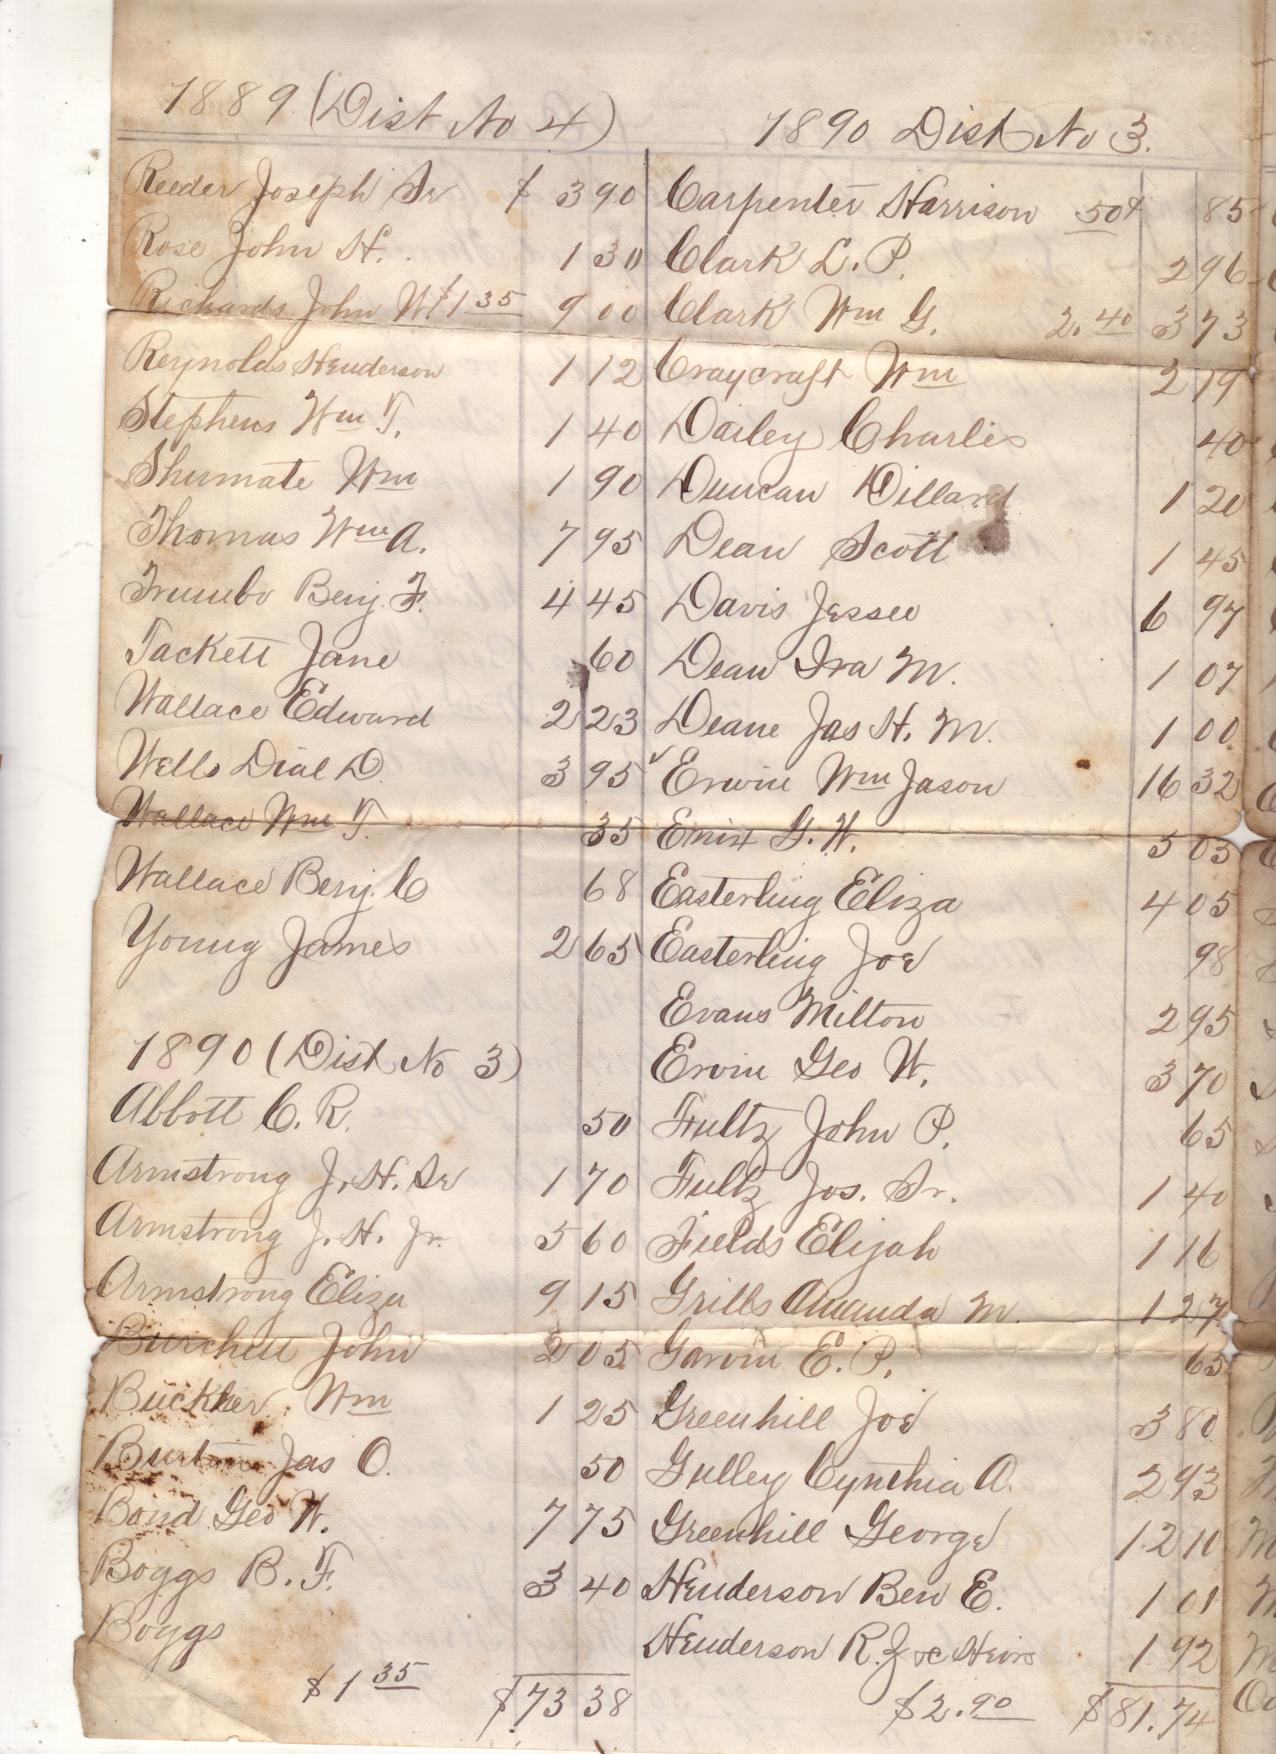 1889 (Dist No 4)
Reeder Joseph Sr $ 3 90
Rose John H. 1 30
Richards John W $1 35 9 00
Reynolds Henderson 1 12
Stephens Wm T. 1 40
Shumate Wm 1 90
Thomas Wm A. 7 95
Trumbo Benj. F. 4 45
Tackett Jane 60
Wallace Edward 2 23
Wells Dial D. 3 95
Wallace Wm T. 35
Wallace Benj. C 68
Young James 2 65
1890 (Dist No 3)
Abbott C. R. 50
Armstrong J. H. Sr 1 70
Armstrong J. H. Jr. 5 60
Armstrong Eliza 9 15
Burchett John 2 05
Buckher Wm 1 25
Burton Jas O. 50
Bond Geo W. 7 75
Boggs B. F. 3 40
Boggs
$1 35 $73 38
1890 Dist No 3.
Carpenter Harrison 50¢ 85
Clark L. P. 2 96
Clark Wm G. 2.40 3 73
Craycraft Wm 2 19
Dailey Charlie 40
Duncan Dillard 1 20
Dean Scott 1 45
Davis Jessee 6 97
Dean Ira M. 1 07
Deane Jas H. M. 1 00
✓ Erwin Wm Jason 16 32
Enix G. W. 5 03
Easterling Eliza 4 05
Easterling Joe 98
Evans Milton 2 95
Ervin Geo W. 3 70
Fultz John P. 65
Fultz Jos. Sr. 1 40
Fields Elijah 1 16
Grills Amanda M. 1 27
Garvin E. P. 65
Greenhill Joe 3 80
Gulley Cynthia A. 2 93
Greenhill George 12 10
Henderson Ben E. 1 01
Henderson R. Joe Heirs 1 92
$2.90 $81.74